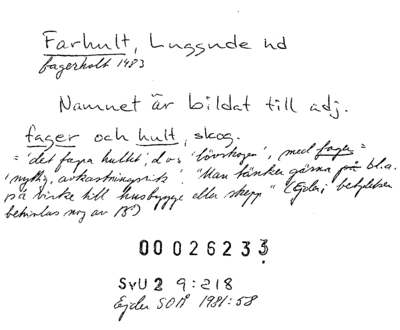 Farhult, Luggude hd
fagerholt 1483
Namnet är bildat till adj.
fager och hult, skog.
= 'det fagra hultet', dvs 'lövskogen', med fager =
'nyttig, avkastningsrik'. "Man tänker gärna på bl.a.
på virke till husbygge eller skepp" (Ejder; betydelsen
av
00026233
SvU 2 9:218
Ejder SOÅ 1981:58